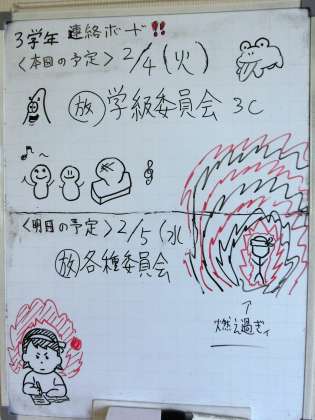 3学年 連絡ボード!!
〈本日の予定〉 2/4(火)
放 学級委員会 3C
〈明日の予定〉 2/5(水
放 各種委員会
↑
燃え過ぎ